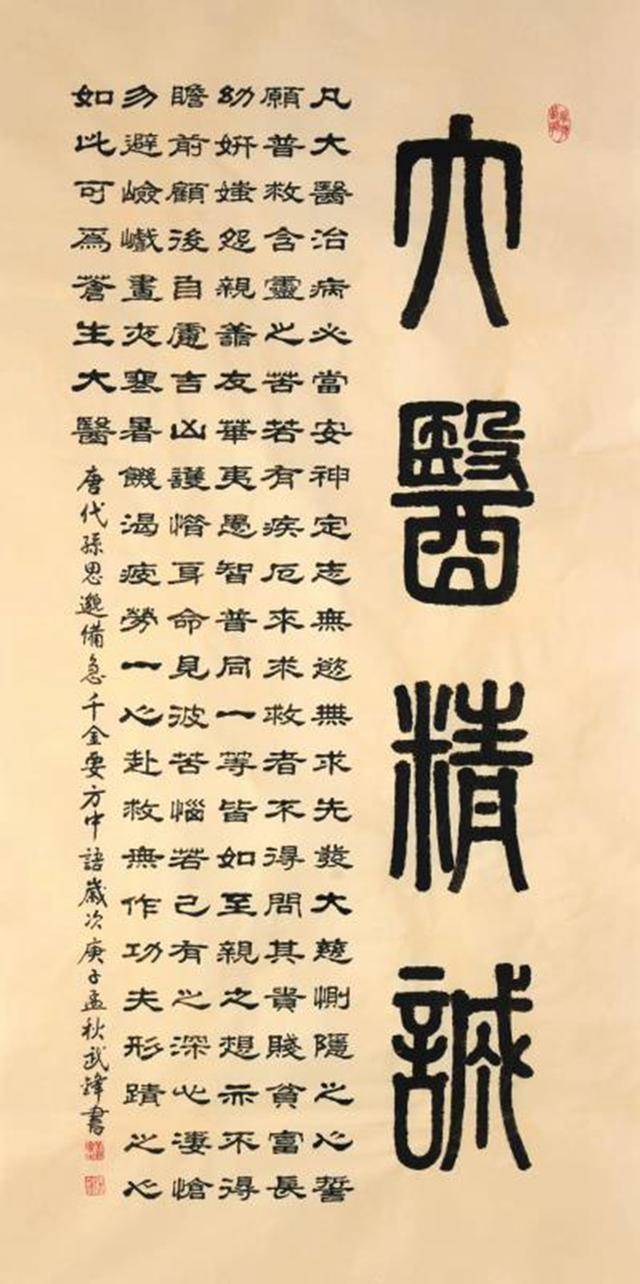 大醫精誠
凡大醫治病必當安神定志無慾無求先發大慈惻隱之心誓
願普救含靈之苦若有疾厄來求救者不得問其貴賤貧富長
幼妍媸怨親善友華夷愚智普同一等皆如至親之想亦不得
瞻前顧後自慮吉凶護惜身命見彼苦惱若己有之深心淒愴
勿避嶮巇晝夜寒暑饑渴疲勞一心赴救無作功夫形蹟之心
如此可為蒼生大醫 唐代孫思邈備急千金要方中語歲次庚子孟秋武鋒書